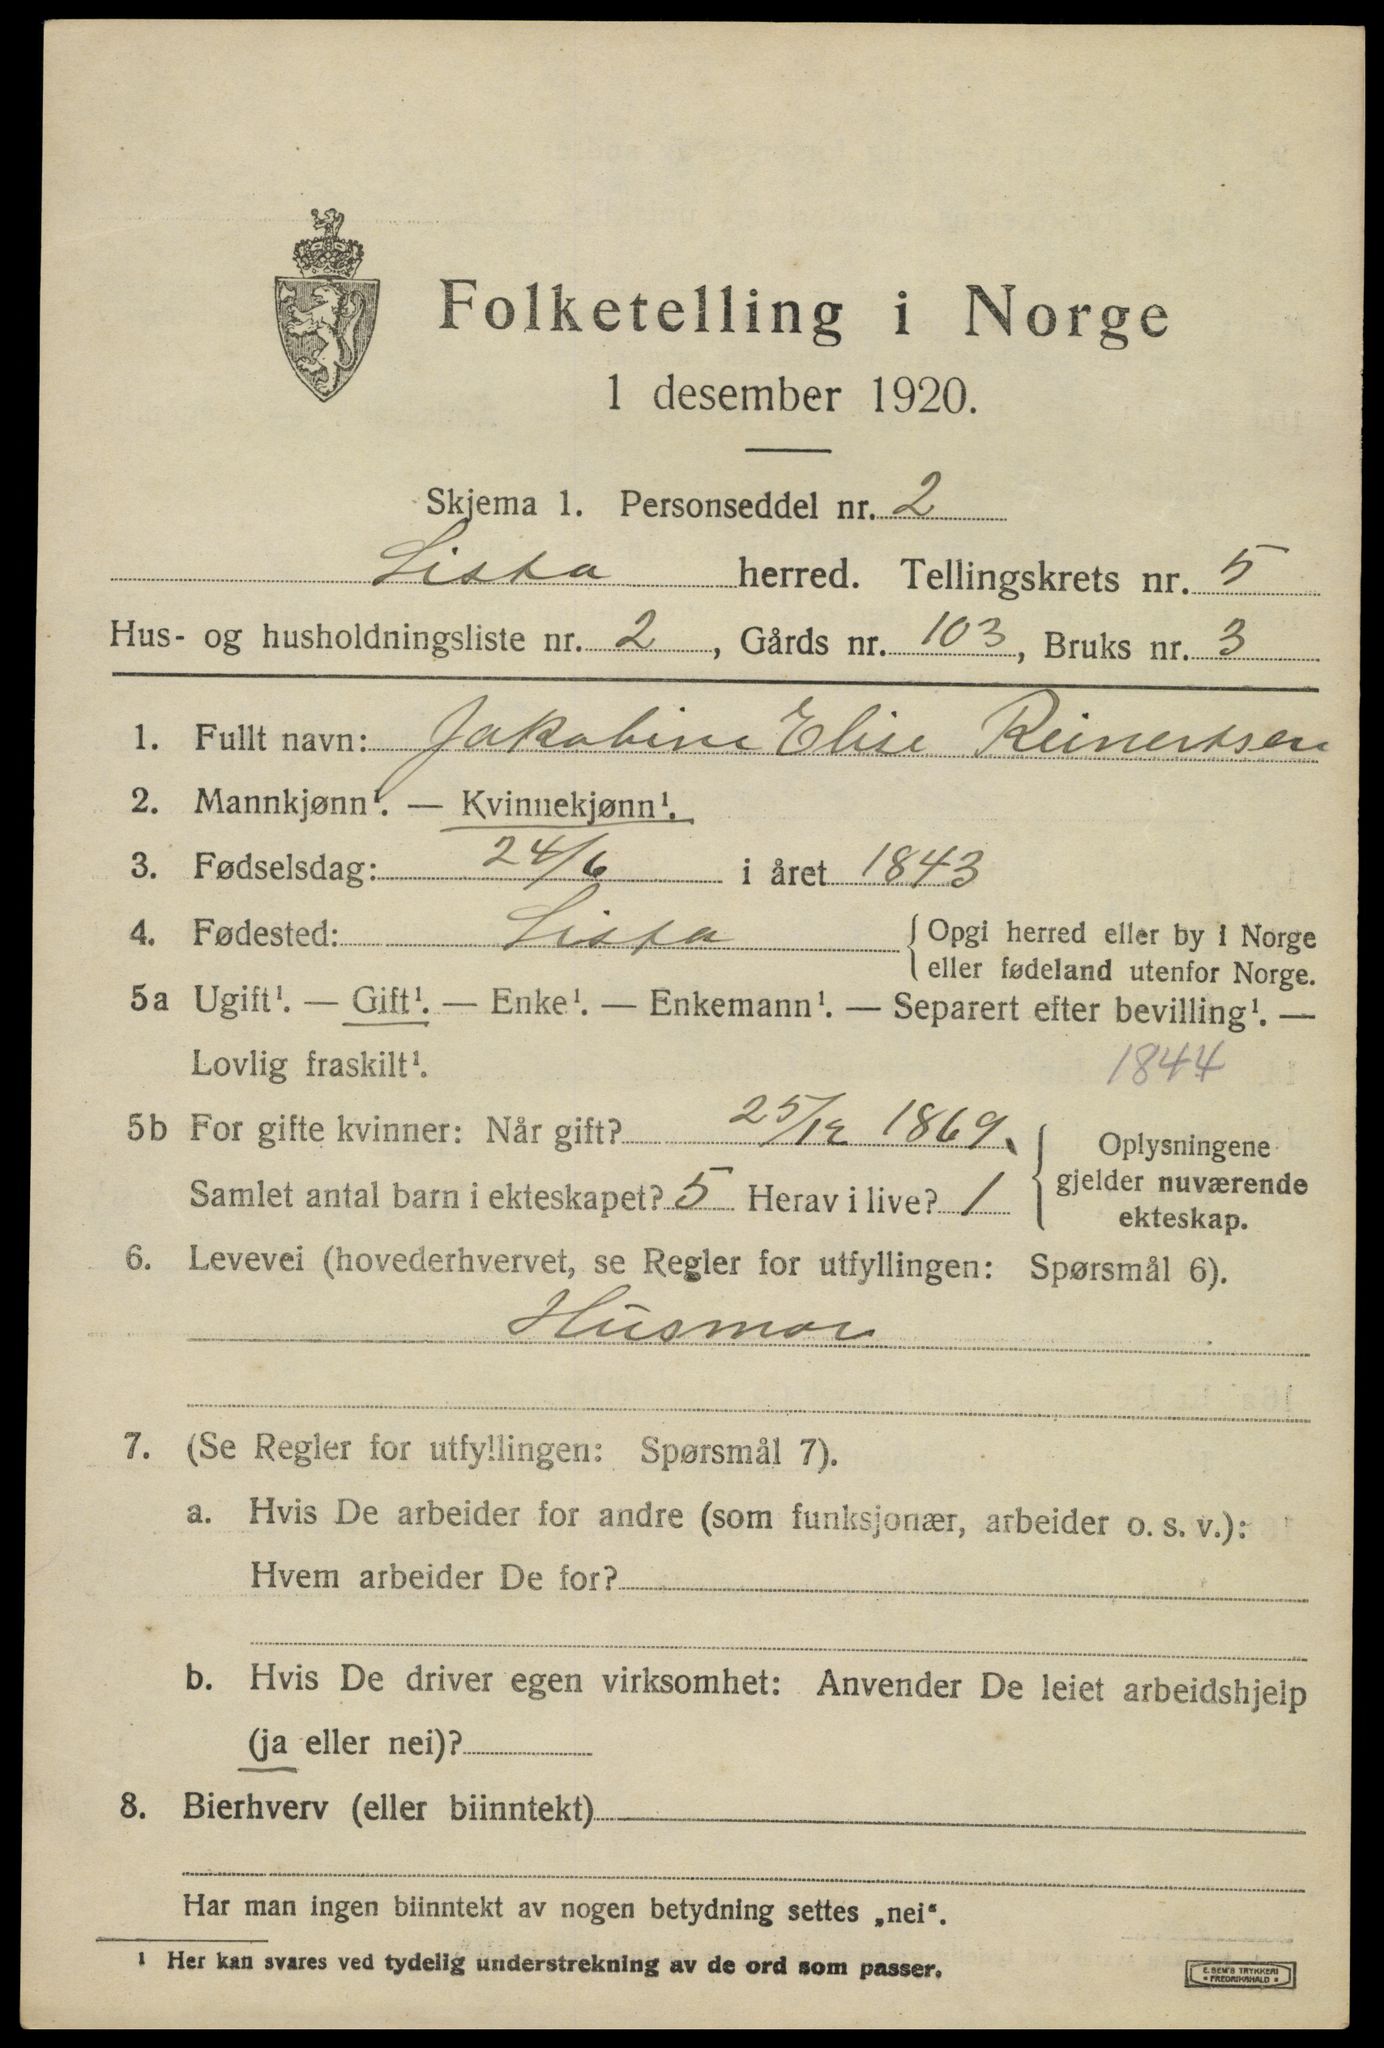 Folketelling i Norge
1 desember 1920.
Skjema 1. Personseddel nr. 2
Lista herred. Tellingskrets nr. 5
Hus- og husholdningsliste nr. 2, Gårds nr. 103, Bruks nr. 3
1. Fullt navn: Jakobine Elise Reinertsen
2. Mannkjønn¹. — Kvinnekjønn¹.
3. Fødselsdag: 24/6 i året 1843
4. Fødested: Lista { Opgi herred eller by i Norge
eller fødeland utenfor Norge.
5a Ugift¹. — Gift¹. — Enke¹. — Enkemann¹. — Separert efter bevilling¹. —
Lovlig fraskilt¹.
1844
5b For gifte kvinner: Når gift? 25/12 1869.
Samlet antal barn i ekteskapet? 5 Herav i live? 1
{ Oplysningene
gjelder nuværende
ekteskap.
6. Levevei (hovederhvervet, se Regler for utfyllingen: Spørsmål 6).
Husmor
7. (Se Regler for utfyllingen: Spørsmål 7).
a. Hvis De arbeider for andre (som funksjonær, arbeider o. s. v.):
Hvem arbeider De for?
b. Hvis De driver egen virksomhet: Anvender De leiet arbeidshjelp
(ja eller nei)?
8. Bierhverv (eller biinntekt)
Har man ingen biinntekt av nogen betydning settes „nei“.
¹ Her kan svares ved tydelig understrekning av de ord som passer.
E. SEM'S TRYKKERI
• FREDRIKSHALD •